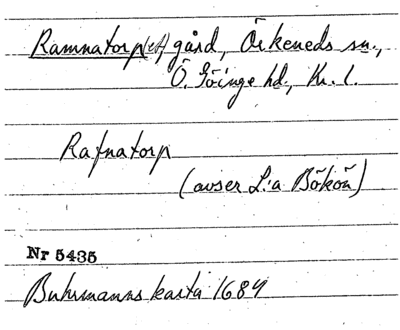 Ramnatorp(et), gård, Örkeneds sn.,
Ö. Göinge hd., Kr. l.
Rafnatorp
(avser L:a Bökön)
Nr 5435
Buhrmanns karta 1684